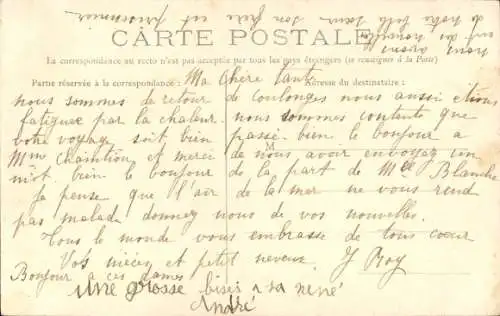 CARTE POSTALE
La correspondance au recto n'est pas acceptée par tous les pays étrangers (se renseigner à la Poste)
Partie réservée à la correspondance: Adresse du destinataire:
Ma chere tante
nous sommes de retour de coulonges nous aussi
fatiguez par la chaleur. nous sommes contents que
votre voyage soit bien passé bien le bonjour a
Mme et merci de nous avoir envoyez un
mot bien le bonjour de la part de Melle Blanche
Je pense que l'air de la mer ne vous rend
pas malade donnez nous de vos nouvelles.
Tous le monde vous embrasse de tous coeur
Vos nièces et petit neveux. J Roy
Bonjour a ces dames
une grosse bises a sa néné
André
nous avons
de notre son frère est prisonnier